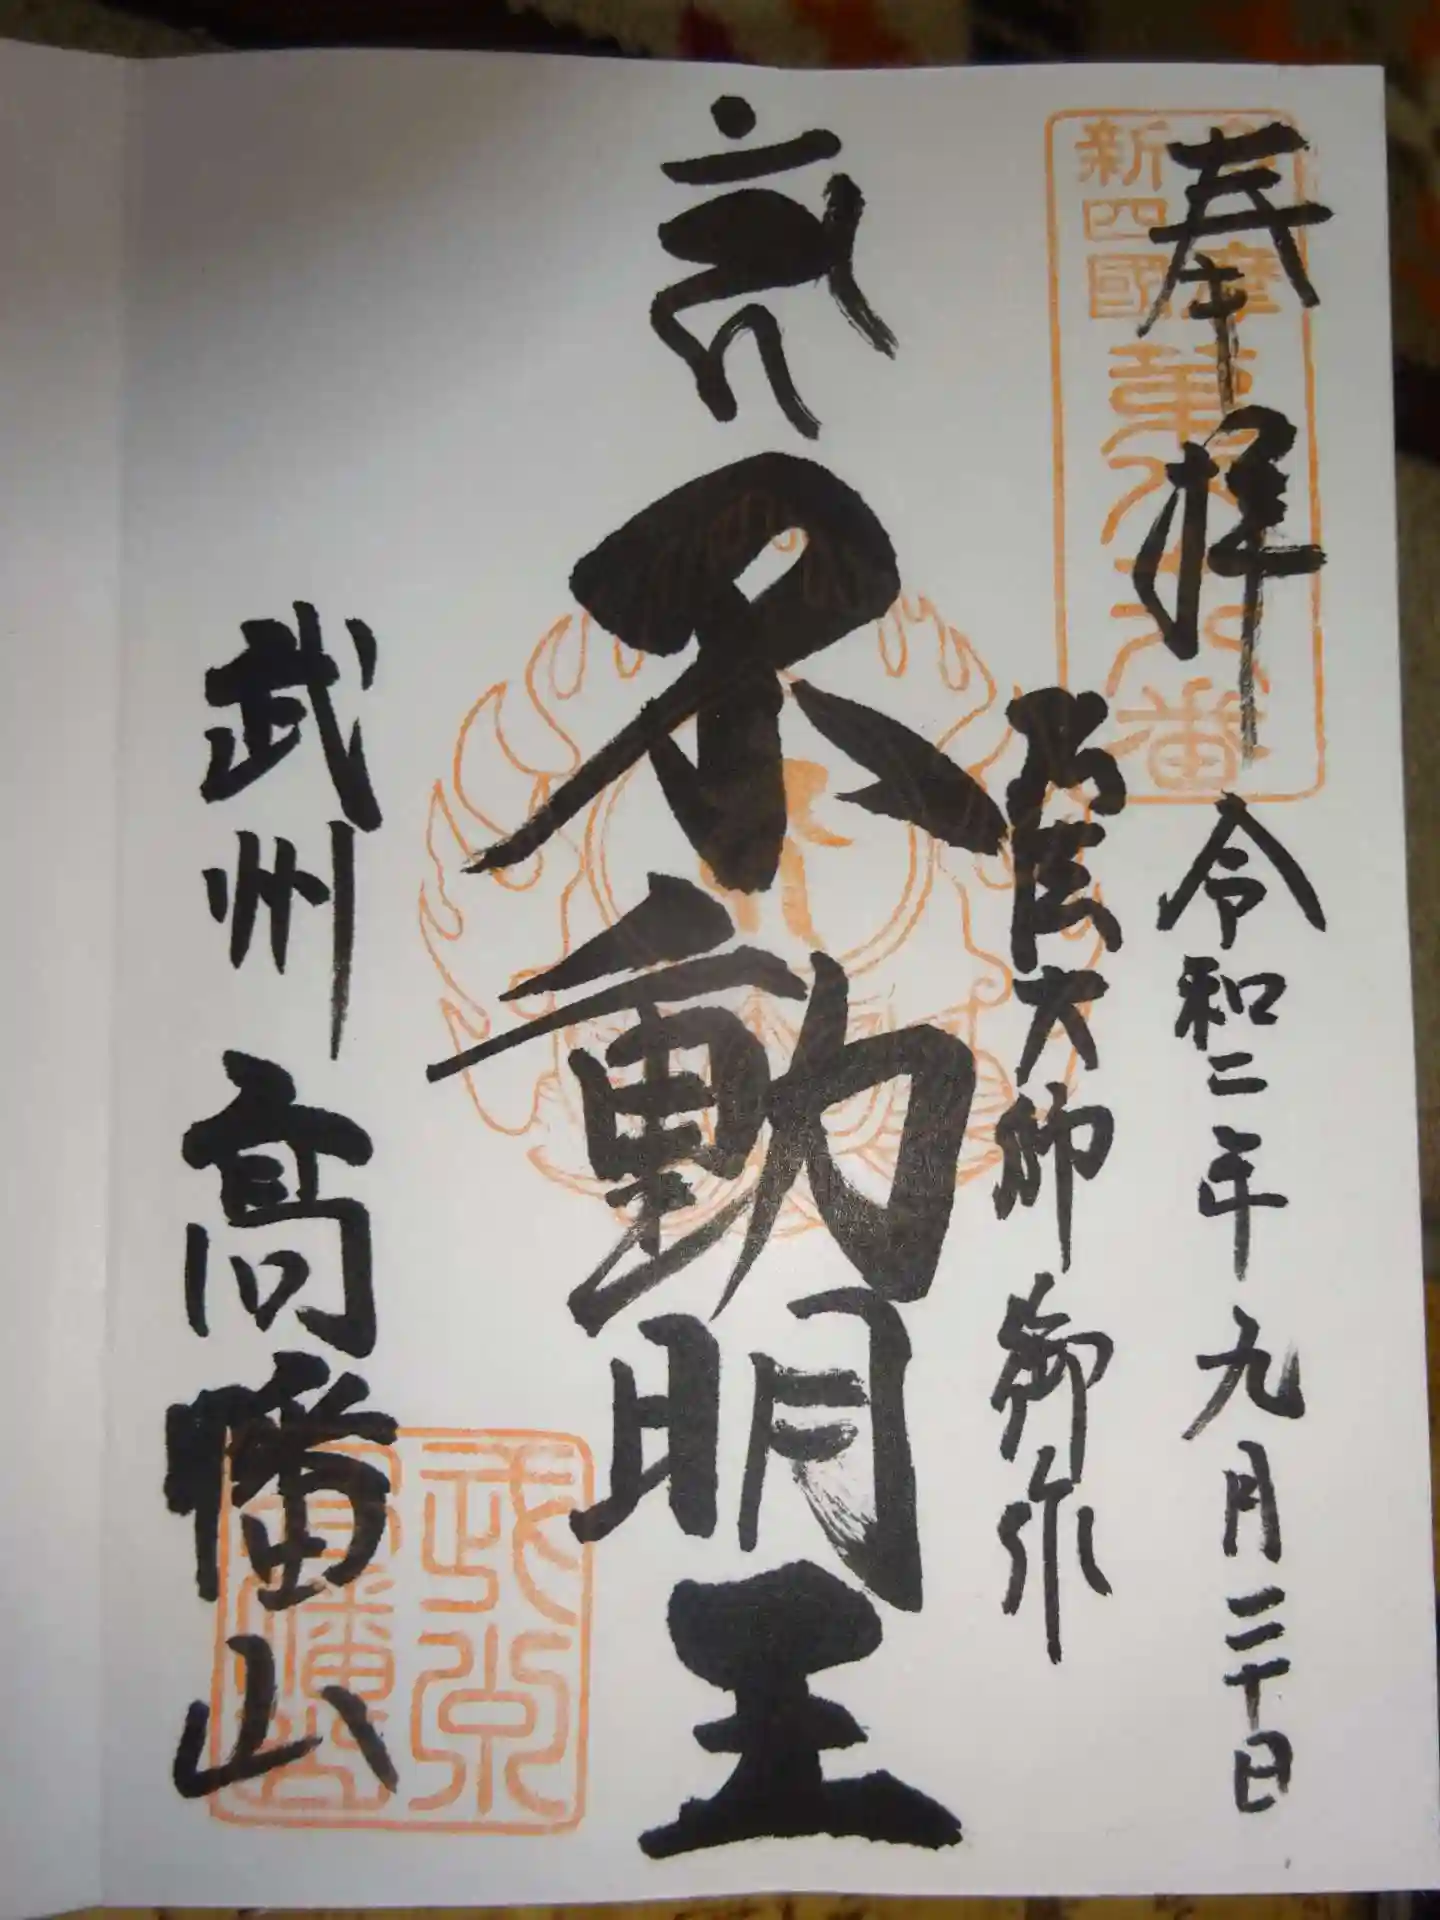 奉拝 令和二年九月二十日
大師御作
不動明王
武州 高幡山
新四國
武州